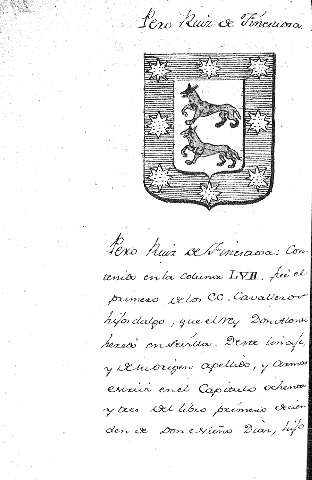 Pero Ruiz de Finestrosa.
Pero Ruiz de Finestrosa: Con
tenido en la coluna LVII. fué el
primero de los CC. Cavalleros
hijosdalgo, que el rey Don Alonso
heredó en Sevilla. Deste linaje,
y de su origen, apellido, y armas
escriví en el Capitulo ochenta
y tres del libro primero decien
den de Don Nuño Diaz, hijo